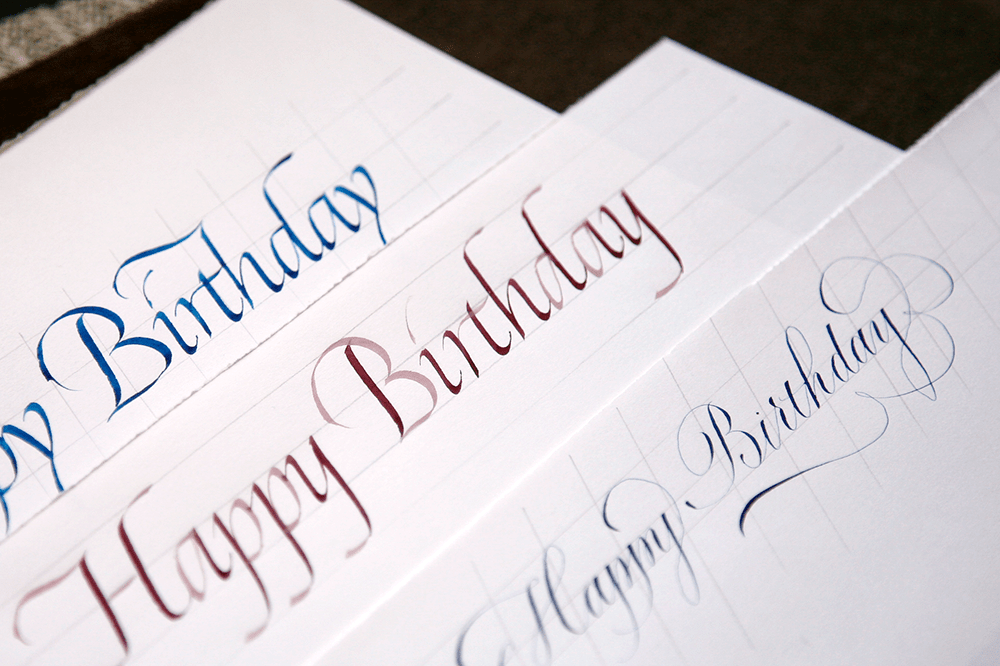 py Birthday
Happy Birthday
Happy Birthday